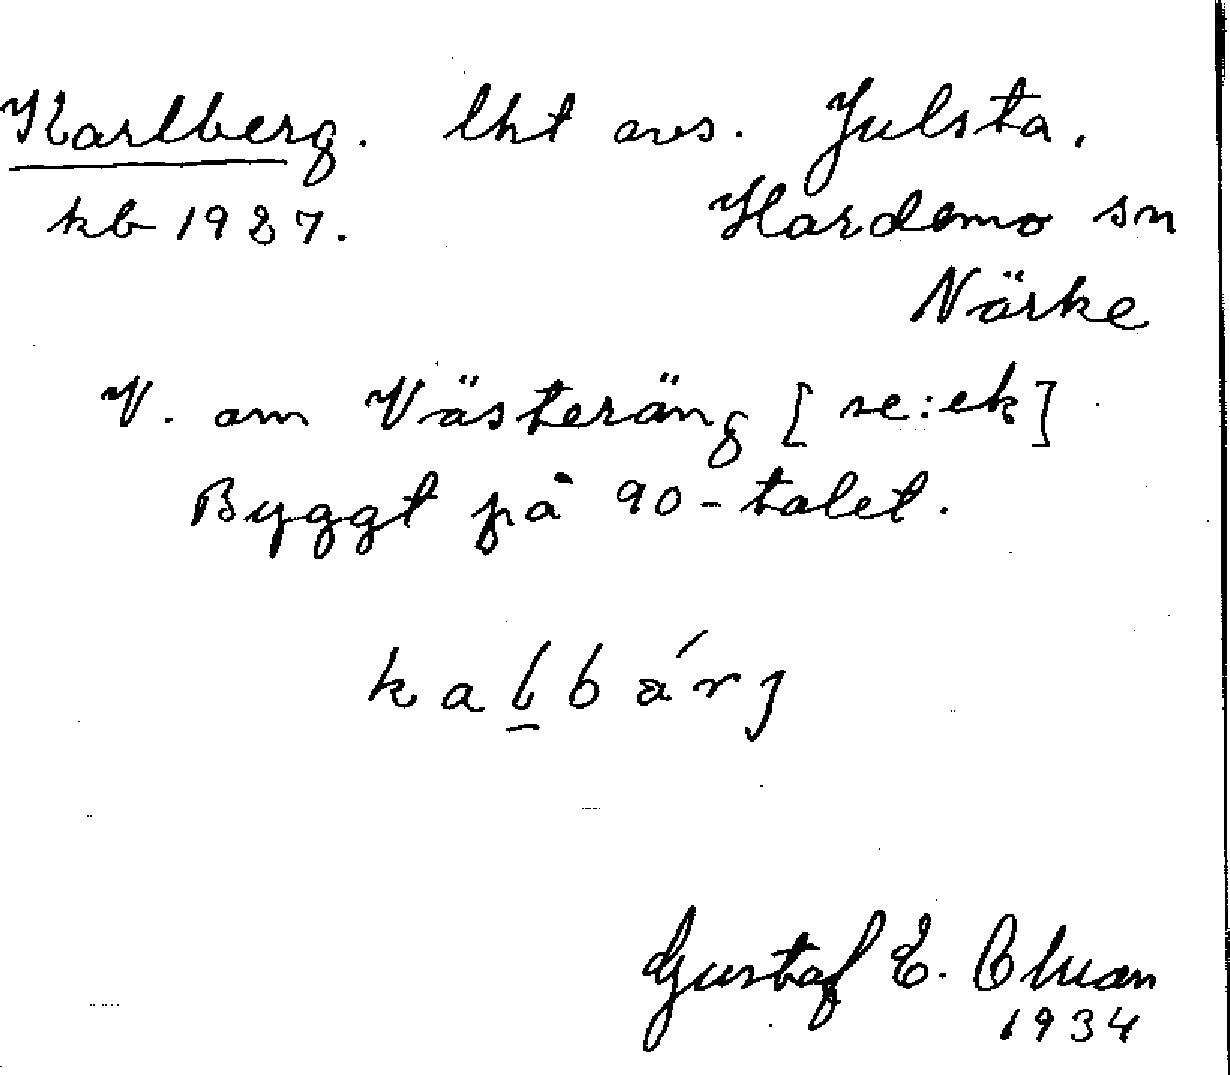 Karlberg. lht avs. Julsta.
kb 1927. Hardemo sn
Närke
V. om Västeräng [se: ek]
Byggt på 90-talet.
Gustaf E.
1934